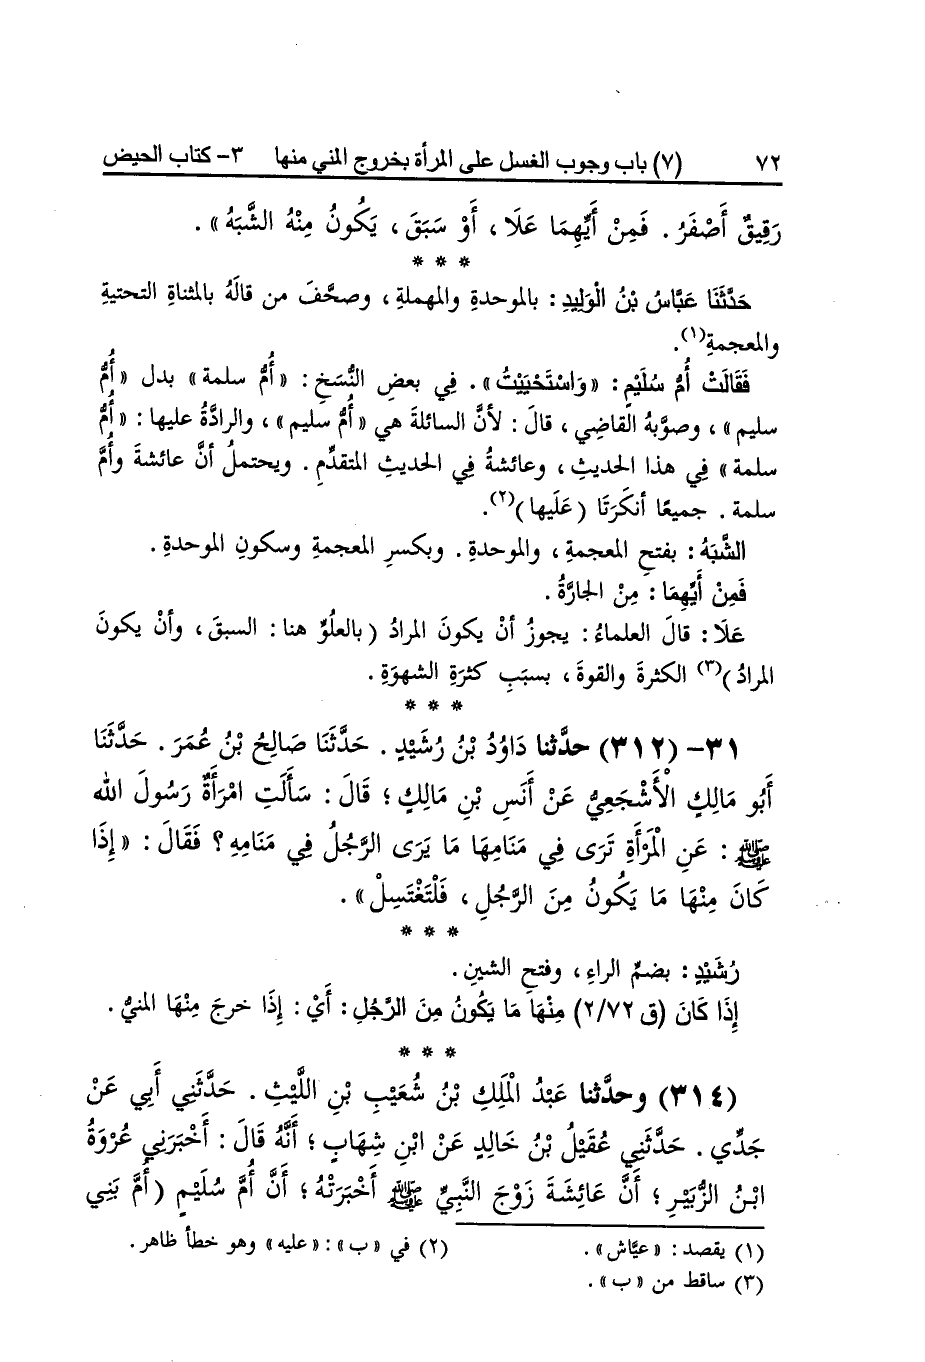 ٧٢ (٧) باب وجوب الغسل على المرأة بخروج المني منها ٣- كتاب الحيض
رَقِيقٌ أَصْفَرُ. فَمِنْ أَيِّهِمَا عَلَا، أَوْ سَبَقَ، يَكُونُ مِنْهُ الشَّبَهُ».
* * *
حَدَّثَنَا عَبَّاسُ بْنُ الْوَلِيدِ: بالموحدةِ والمهملةِ، وصحَّفَ من قالَهُ بالمثناةِ التحتيةِ
والمعجمةِ(١).
فَقَالَتْ أُمُّ سُلَيْمٍ: «وَاسْتَحْيَيْتُ». فِي بعضِ النُّسَخِ: «أُمُّ سلمة» بدل «أُمُّ
سليم»، وصوَّبهُ القَاضِي، قالَ: لأنَّ السائلةَ هي «أُمُّ سليم»، والرادَّةُ عليها: «أُمُّ
سلمة» فِي هذا الحديثِ، وعائشةُ فِي الحديثِ المتقدِّمِ. ويحتملُ أنَّ عائشةَ وأُمَّ
سلمة. جميعًا أنكَرَتَا (عَلَيها)(٢).
الشَّبَهُ: بفتحِ المعجمةِ، والموحدةِ. وبكسرِ المعجمةِ وسكونِ الموحدةِ.
فَمِنْ أَيِّهِمَا: مِنْ الجارَّةُ.
عَلَا: قالَ العلماءُ: يجوزُ أنْ يكونَ المرادُ (بالعلُوِّ هنا: السبقَ، وأنْ يكونَ
المرادُ)(٣) الكثرةَ والقوةَ، بسبَبِ كثرَةِ الشهوَةِ.
* * *
٣١- (٣١٢) حدَّثنا دَاوُدُ بْنُ رُشَيْدٍ. حَدَّثَنَا صَالِحُ بْنُ عُمَرَ. حَدَّثَنَا
أَبُو مَالِكٍ الْأَشْجَعِيُّ عَنْ أَنَسِ بْنِ مَالِكٍ؛ قَالَ: سَأَلَتِ امْرَأَةٌ رَسُولَ الله
ﷺ: عَنِ الْمَرْأَةِ تَرَى فِي مَنَامِهَا مَا يَرَى الرَّجُلُ فِي مَنَامِهِ؟ فَقَالَ: «إِذَا
كَانَ مِنْهَا مَا يَكُونُ مِنَ الرَّجُلِ، فَلْتَغْتَسِلْ».
* * *
رُشَيْدٍ: بضمِّ الراءِ، وفتحِ الشينِ.
إِذَا كَانَ (ق ٢/٧٢) مِنْهَا مَا يَكُونُ مِنَ الرَّجُلِ: أَيْ: إِذَا خرجَ مِنْهَا المنيُّ.
* * *
(٣١٤) وحدَّثنا عَبْدُ الْمَلِكِ بْنُ شُعَيْبِ بْنِ اللَّيْثِ. حَدَّثَنِي أَبِي عَنْ
جَدِّي. حَدَّثَنِي عُقَيْلُ بْنُ خَالِدٍ عَنْ ابْنِ شِهَابٍ؛ أَنَّهُ قَالَ: أَخْبَرَنِي عُرْوَةُ
ابْنُ الزُّبَيْرِ؛ أَنَّ عَائِشَةَ زَوْجَ النَّبِيِّ ﷺ أَخْبَرَتْهُ؛ أَنَّ أُمَّ سُلَيْمٍ (أُمَّ بَنِي
(١) يقصد: «عيَّاش». (٢) في «ب»: «عليه» وهو خطأ ظاهر.
(٣) ساقط من «ب».